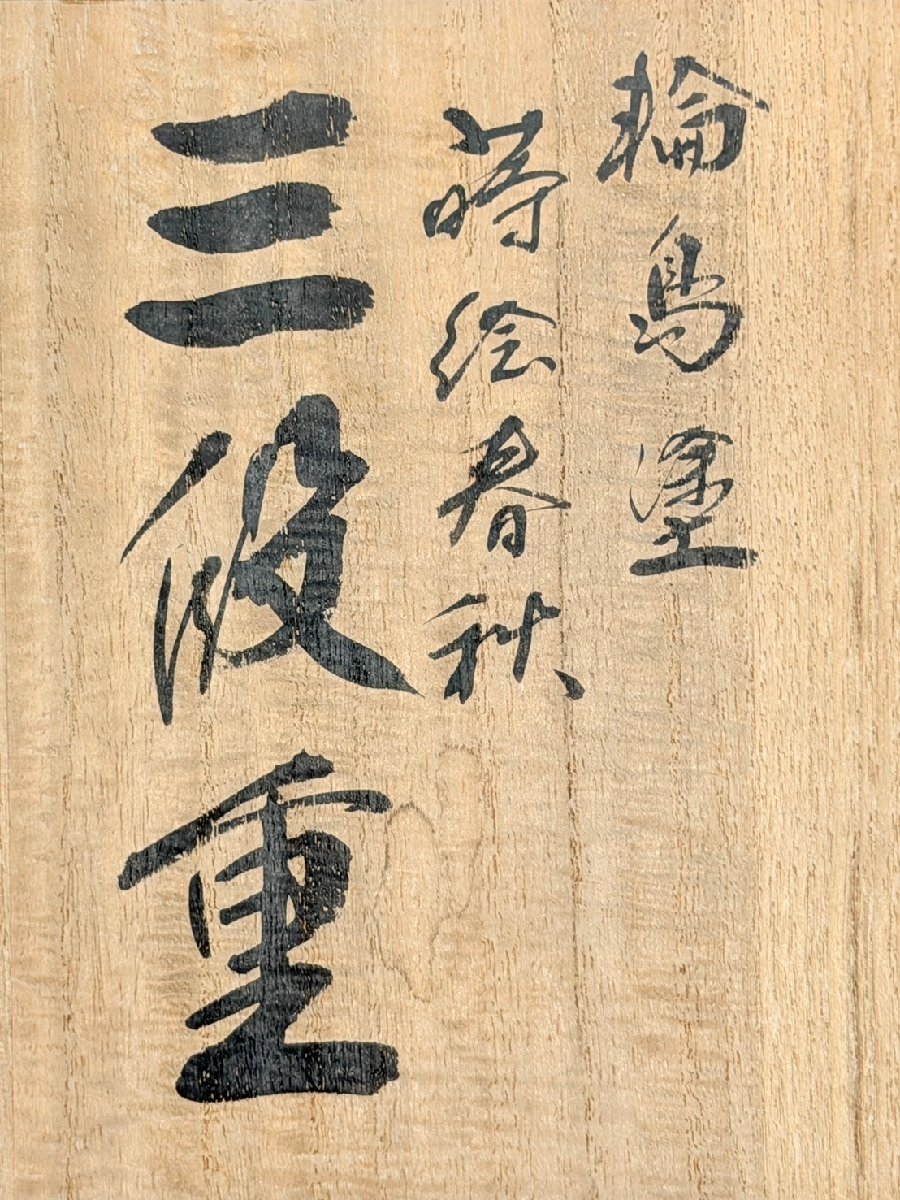 輪島塗
蒔絵春秋
三段重